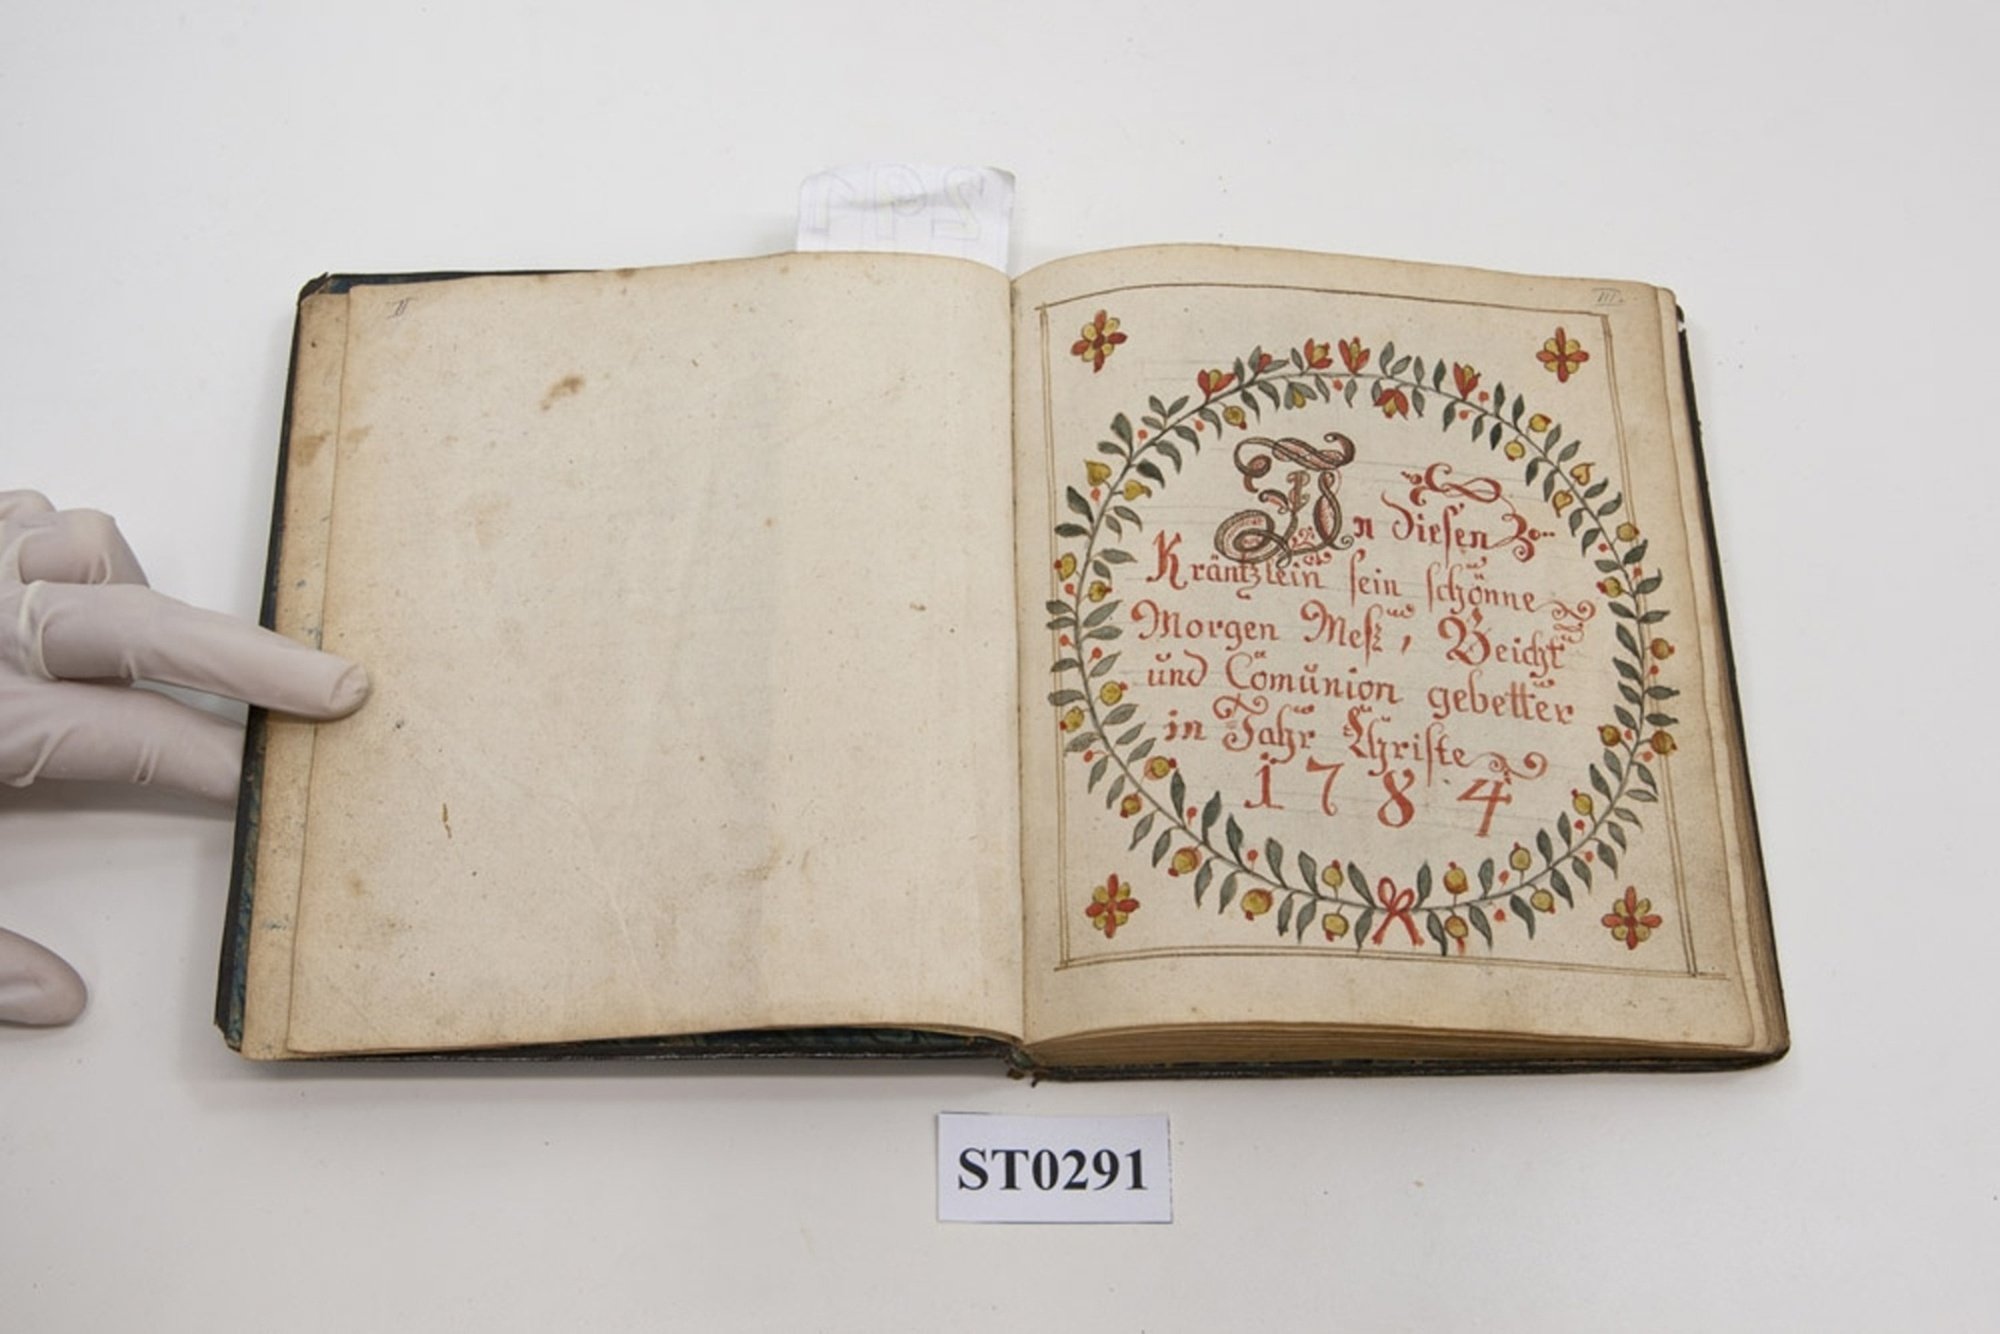 291
II
III.
In diesen
Kräntzlein sein schönne
Morgen Meß, Beicht
und Comŭnion gebetter
in Jahr Christe
1784
ST0291